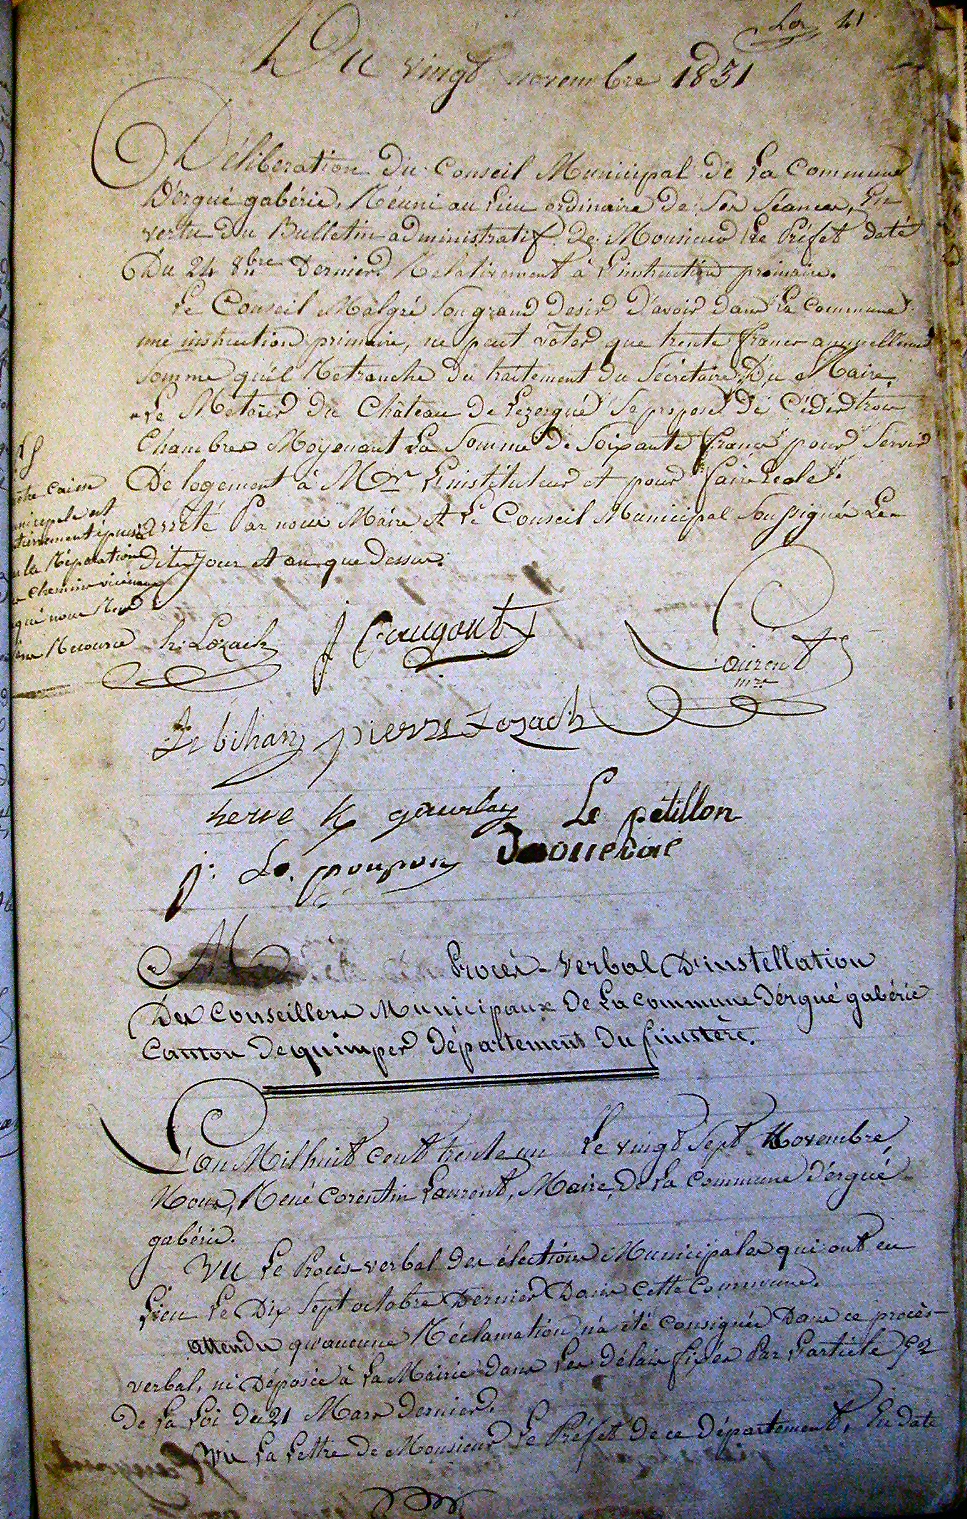 41
Du vingt novembre 1831
Délibération du Conseil Municipal de La Commune
D'ergué gabéric, Réuni au Lieu ordinaire de Ses Séances, En
vertu du Bulletin administratif de Monsieur Le Préfet daté
Du 24 8bre Dernier Relativement à L'instruction primaire.
Le Conseil Malgré Son grand desir d'avoir dans La Commune
une instruction primaire, ne peut voter que trente francs annuellement
Somme qu'il Retranche du traitement du Sécrétaire Du Maire.
Le Metoier du Château de Lezergué Se propose de Céder trois
Chambres Moyenant La Somme de Soixante francs pour Servir
De logement à Mr L'instituteur et pour faire Ecole.
Arrêté Par nous Maire et Le Conseil Municipal Soussignés Les
Dits Jour et an que Dessus.
Notre Caisse
municipale est
entièrement épuisée
la Réparation
chemins vicinaux
qué nous
Recourir
h: Lozach J Caugout Laurent
mre
Le bihan pierre Lozach
herve Le gourlay Le pétillon
j: Le poupon Jaoueloie
Procès-verbal D'installation
Des Conseillers Municipaux De La Commune d'ergué gabéric
Canton de quimper département du finistère.
L'an Mil huit cent trente un Le vingt Sept Novembre,
Nous, René Corentin Laurent, Maire de La Commune d'ergué
gabéric.
Vu Le Procès-verbal des élections Municipales qui ont eu
Lieu Le Dix Sept octobre Dernier Dans cette Commune.
Attendu qu'aucune Réclamation n'a été consignée Dans ce procès-
verbal, ni Déposée à La Mairie dans Les délais fixés Par L'article 52
De La Loi du 21 Mars Dernier.
Vu La Lettre de Monsieur Le Préfet de ce département, En date